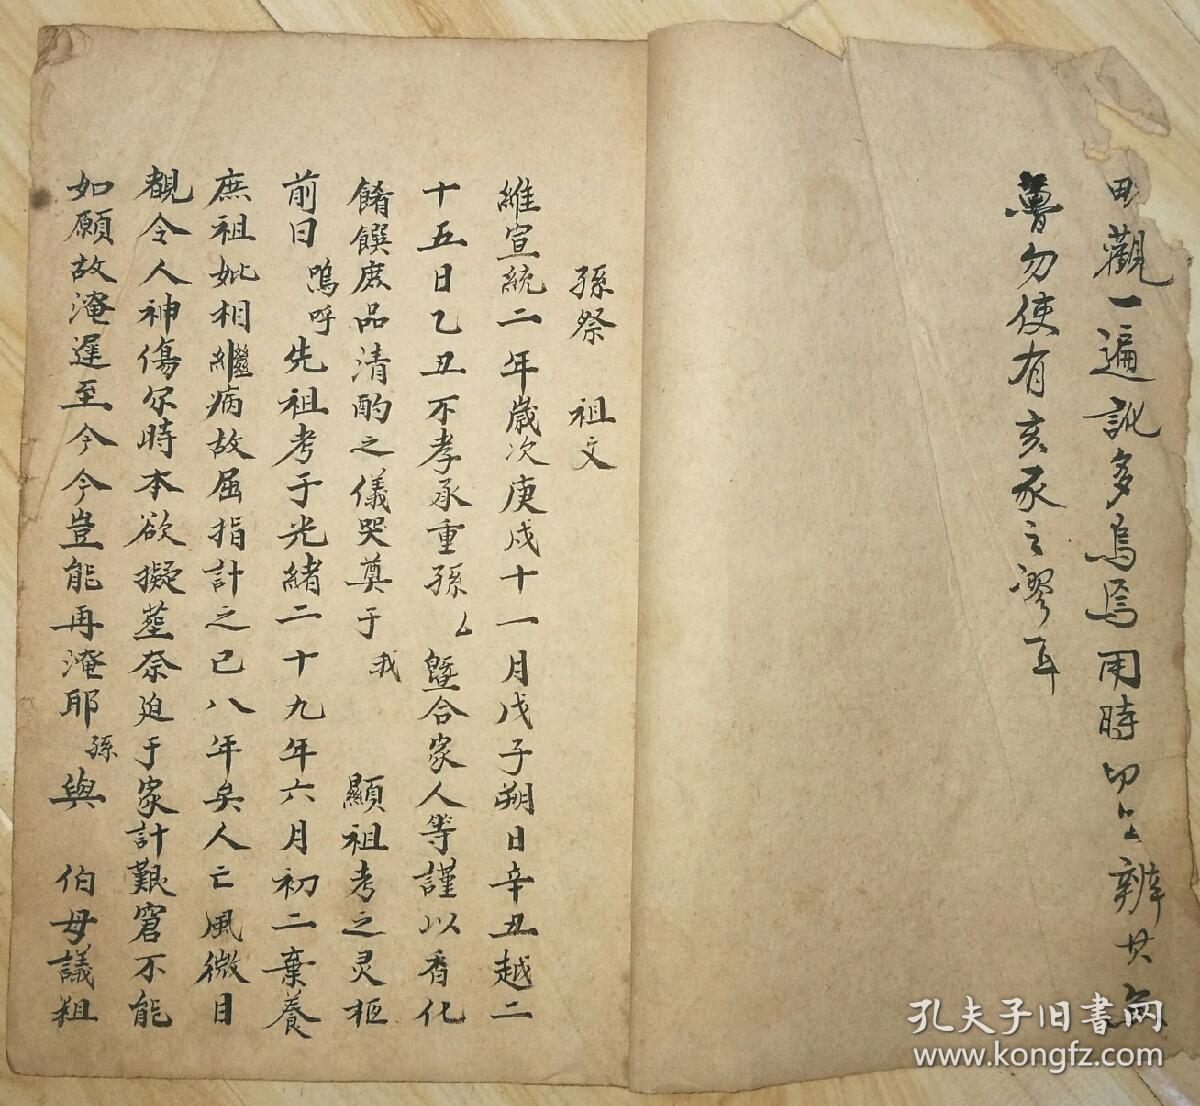 觀一遍訛多烏焉用時切必辨其魚
魯勿使有亥豕之謬耳
孫祭 祖文
維宣統二年歲次庚戌十一月戊子朔日辛丑越二
十五日乙丑不孝承重孫厶暨合家人等謹以香化
餚饌庶品清酌之儀哭奠于我 顯祖考之灵柩
前曰嗚呼先祖考于光緒二十九年六月初二棄養
庶祖妣相繼病故屈指計之已八年矣人亡風微目
覩令人神傷尔時本欲擬塟奈迫于家計艱窘不能
如願故淹遲至今今豈能再淹耶孫與 伯母議粗
孔夫子旧书网
www.kongfz.com